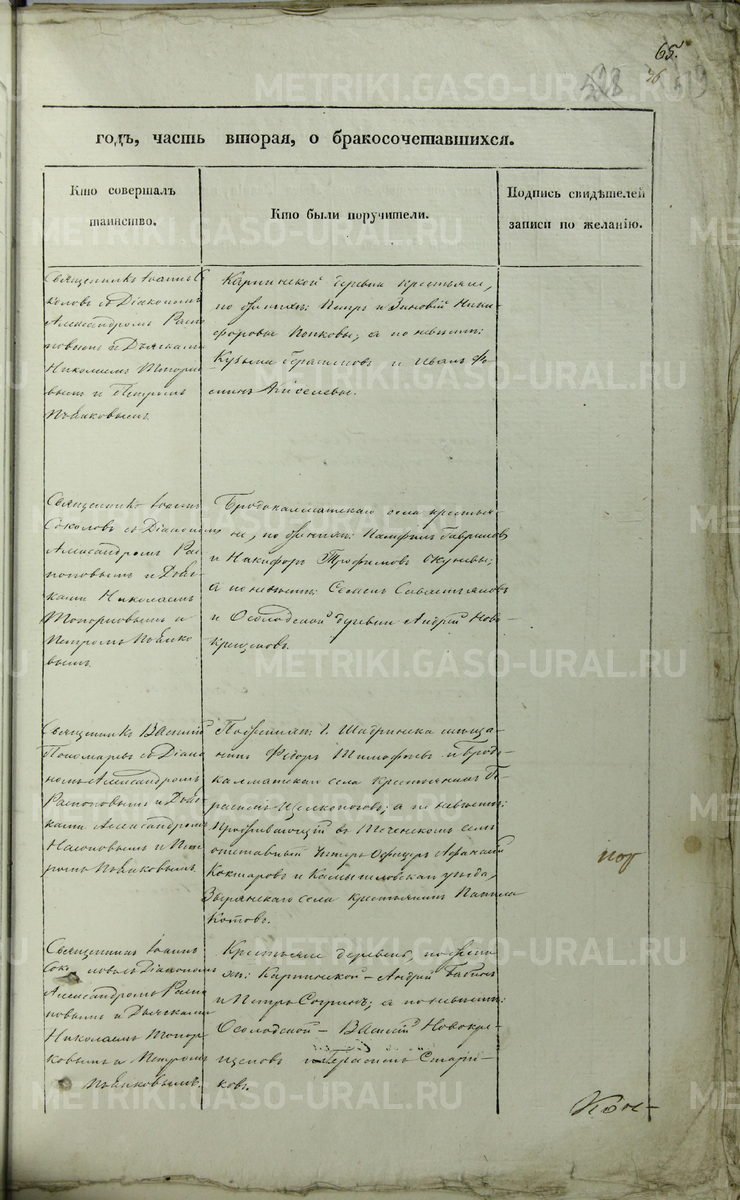 65.
76
годъ, часть вторая, о бракосочетавшихся.
Кто совершалъ
таинство.
Кто были поручители.
Подпись свидѣтелей
записи по желанію.
Священникъ Іоаннъ Со
коловъ съ Діакономъ
Александромъ Распо
повымъ и Дьячками
Николаемъ Топорко
вымъ и Петромъ
Пьянковымъ.
деревни крестьяне,
по женихѣ: Петръ и Зиновій Ники-
форовы Попковы; а по невѣстѣ:
Кузьма Герасимовъ и Иванъ Фо-
минъ Киселевы.
Священникъ Іоаннъ
Соколовъ съ Діакономъ
Александромъ Рас-
поповымъ и Дьяч-
ками Николаемъ
Топорковымъ и
Петромъ Пьянко
вымъ.
Бродокалматскаго села крестья
не, по женихѣ: Памфилъ Гавриловъ
и Никифоръ Трофимовъ Окуневы;
а по невѣстѣ: Семенъ Савастьяновъ
и Осолодской деревни Андрей Ново-
крещеновъ.
Священникъ Василій
Пономаревъ съ Діако
номъ Александромъ
Распоповымъ и Дьяч
ками Александромъ
и Пет
ромъ Пьянковымъ.
По женихѣ г. Шадринска мѣща-
нинъ Федоръ Тимофеевъ и Бродо-
калматскаго села крестьянинъ
а по невѣстѣ:
Проживающій въ Теченскомъ селѣ
отставный Унтеръ Офицеръ Афанасій
Кокшаровъ и Камышловскаго уѣзда,
Зырянскаго села крестьянинъ
Котовъ.
Священникъ Іоаннъ
Соколовъ съ Діакономъ
Александромъ Распо
повымъ и Дьячками
Николаемъ Топор-
ковымъ и Петромъ
Пьянковымъ.
Крестьяне деревень, по жени-
хѣ: Андрей Бабинъ
и Петръ а по невѣстѣ:
Осолодской – Василій Новокре-
щеновъ и Герасимъ Стари-
ковъ.